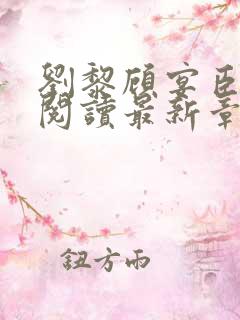 劉黎顧宴臣
閱讀最新章
鈕方雨